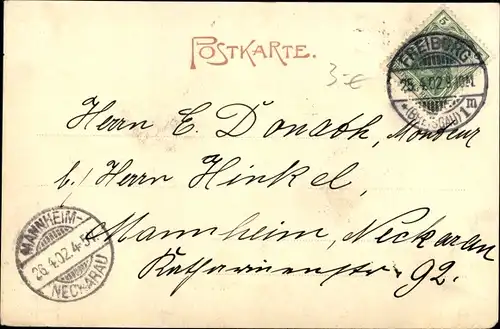 POSTKARTE.
5
3.-€
FREIBURG
25.4.02.8-10N.
*(BREISGAU)1m
Herrn E. Donath, Monteur
b/ Herrn Hinkel,
Mannheim, Neckarau
Katharinenstr. 92.
MANNHEIM-
26.4.02.4-5N.
NECKARAU